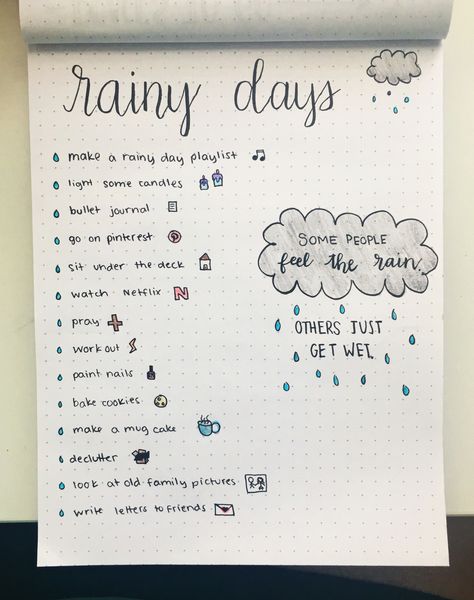 rainy days
make a rainy day playlist
light some candles
bullet journal
go on pinterest
sit under the deck
watch Netflix
pray
work out
paint nails
bake cookies
make a mug cake
declutter
look at old family pictures
write letters to friends
SOME PEOPLE
feel the rain.
OTHERS JUST
GET WET.